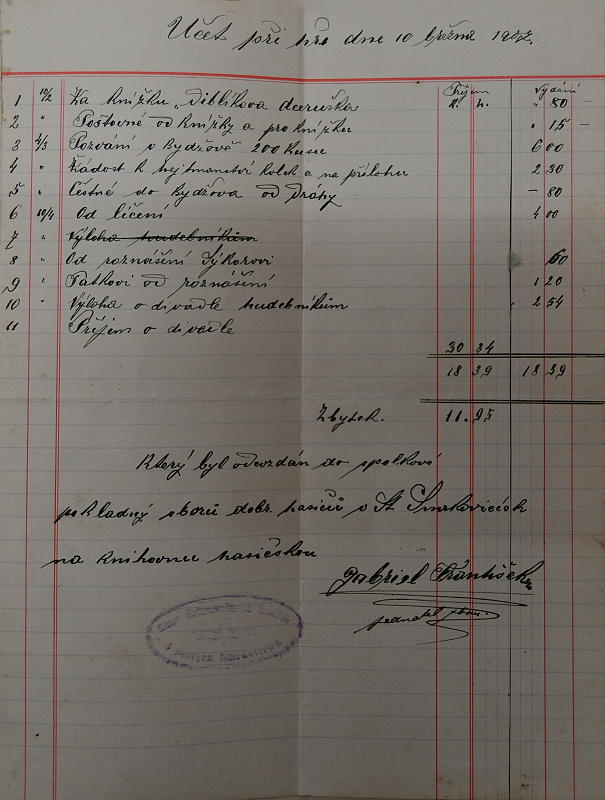 Účet při hře dne 10 března
Příjem Vydání
K. h.
1 10/2 Za knížku „Diblíkova dceruška " 80 —
2 " Poštovné od knížky a pro knížku " 15 —
3 4/3 Pozvání v Bydžově 200 kusů 6 00
4 " Žádost k hejtmanství kolek a na přílohu 2 30
5 " Čestné do Bydžova od dráhy — 80
6 10/4 Od líčení 4 00
7 " Výloha hudebníkům
8 " Od roznášení Sýkorovi 60
9 " Patkovi od roznášení 1 20
10 " Výloha o divadle hudebníkům 2 54
11 Příjem o divadle
30 34
18 39 18 39
Zbytek. 11.95
Který byl odevzdán do spolkové
pokladny sborů dobr. hasičů v St. Smrkovicích
na knihovnu hasičskou
Gabriel František
jednatel